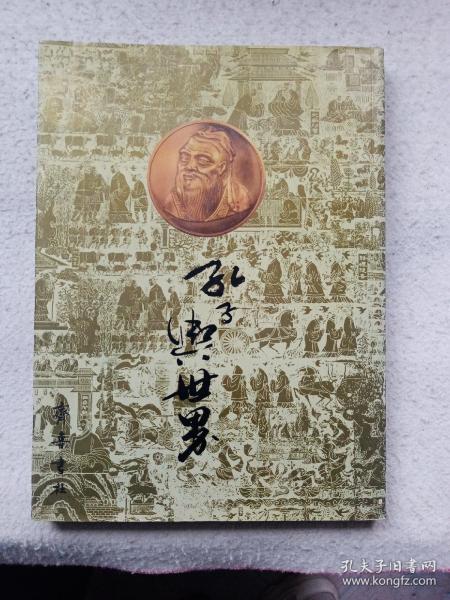 孔子與世界
齊魯書社
孔夫子旧书网
www.kongfz.com